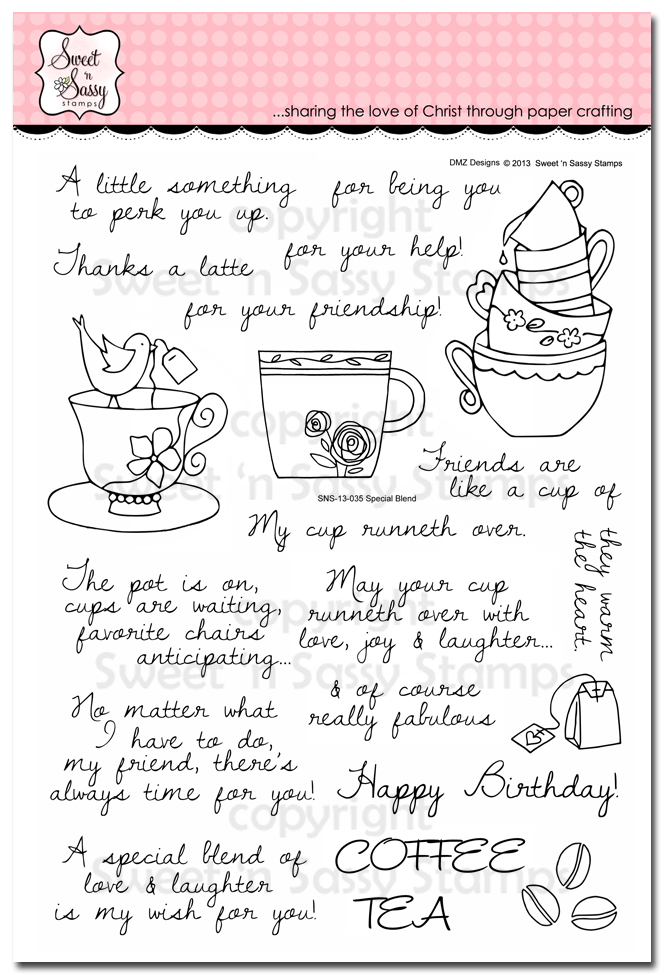 Sweet
'n
Sassy
stamps
...sharing the love of Christ through paper crafting
DMZ Designs © 2013 Sweet 'n Sassy Stamps
A little something
to perk you up.
for being you
for your help!
Thanks a latte
for your friendship!
SNS-13-035 Special Blend
Friends are
like a cup of
they warm
the heart.
My cup runneth over.
The pot is on,
cups are waiting,
favorite chairs
anticipating...
May your cup
runneth over with
love, joy & laughter...
& of course
really fabulous
No matter what
I have to do,
my friend, there's
always time for you!
Happy Birthday!
A special blend of
love & laughter
is my wish for you!
COFFEE
TEA
copyright
Sweet 'n Sassy Stamps
copyright
Sweet 'n Sassy Stamps
copyright
Sweet 'n Sassy Stamps
copyright
Sweet 'n Sassy Stamps